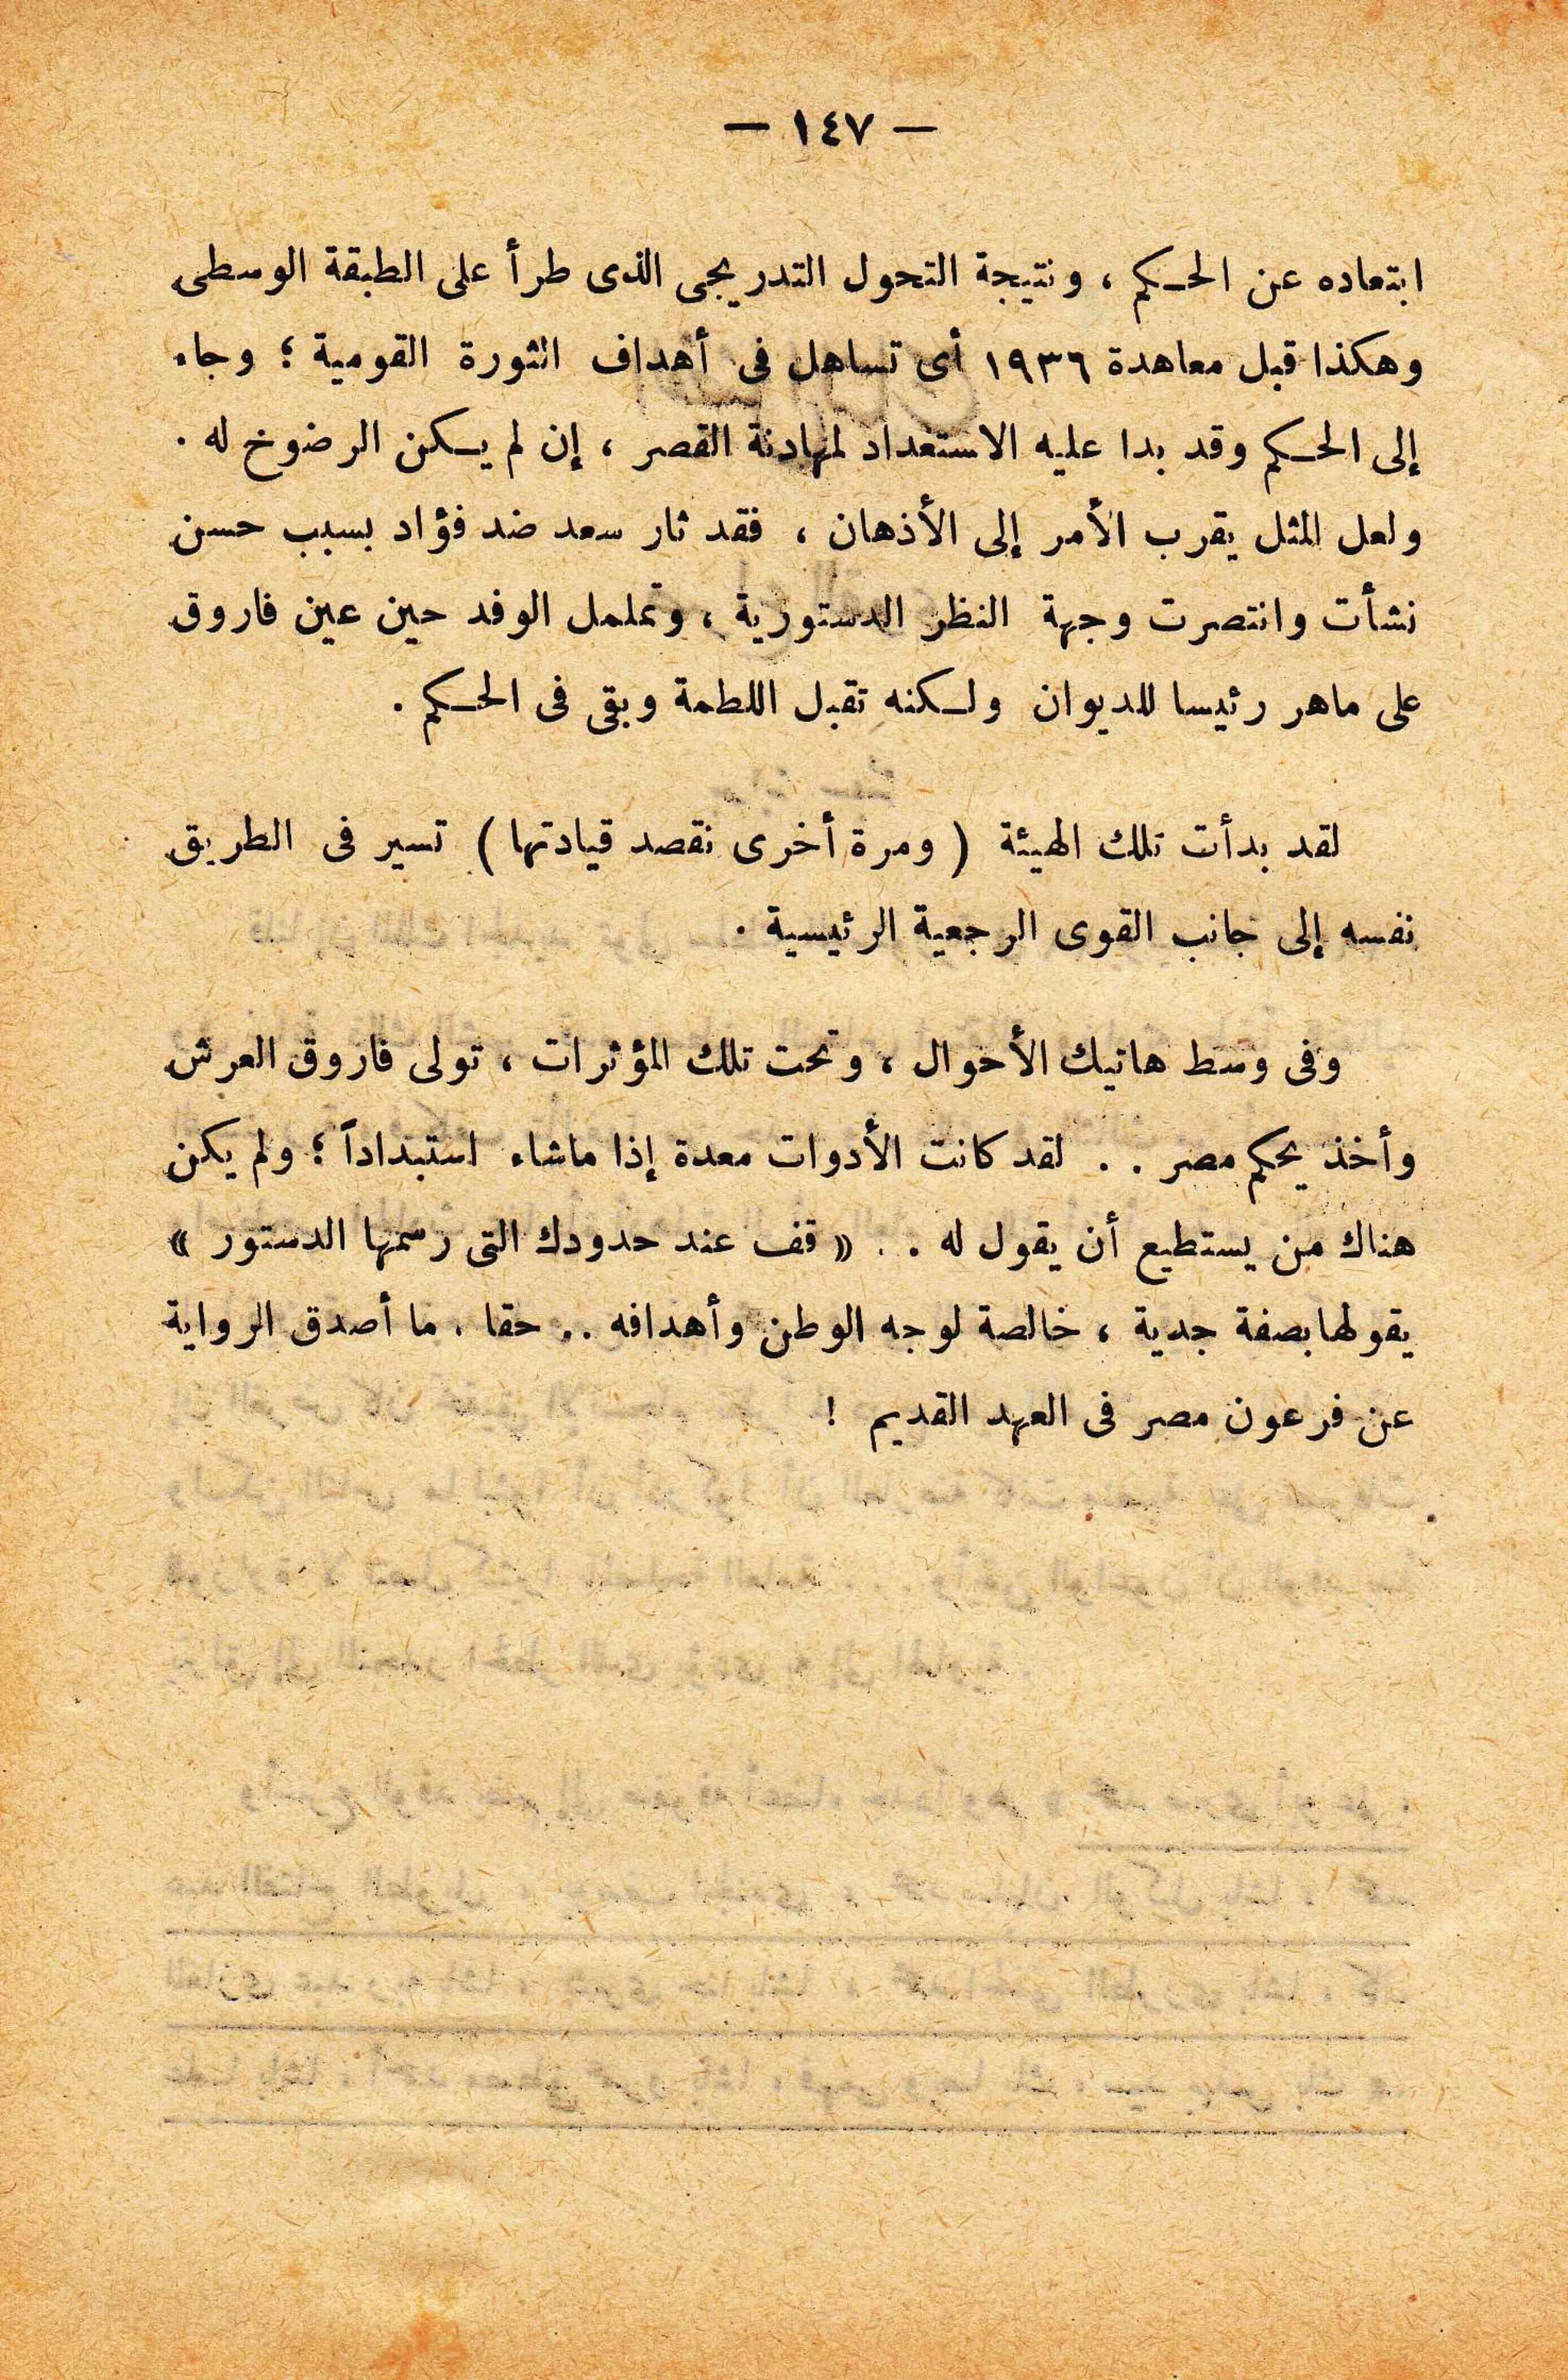 — ١٤٧ —
ابتعاده عن الحكم ، ونتيجة التحول التدريجى الذى طرأ على الطبقة الوسطى
وهكذا قبل معاهدة ١٩٣٦ أى تساهل فى أهداف الثورة القومية ؛ وجاء
إلى الحكم وقد بدا عليه الاستعداد لمهادنة القصر ، إن لم يكن الرضوخ له .
ولعل المثل يقرب الأمر إلى الأذهان ، فقد ثار سعد ضد فؤاد بسبب حسن
نشأت وانتصرت وجهة النظر الدستورية ، وتململ الوفد حين عين فاروق
على ماهر رئيسا للديوان ولكنه تقبل اللطمة وبقى فى الحكم .
لقد بدأت تلك الهيئة ( ومرة أخرى نقصد قيادتها ) تسير فى الطريق
نفسه إلى جانب القوى الرجعية الرئيسية .
وفى وسط هاتيك الأحوال ، وتحت تلك المؤثرات ، تولى فاروق العرش
وأخذ يحكم مصر . . لقد كانت الأدوات معدة إذا ماشاء استبداداً ؛ ولم يكن
هناك من يستطيع أن يقول له . . « قف عند حدودك التى رسمها الدستور »
يقولها بصفة جدية ، خالصة لوجه الوطن وأهدافه .. حقا . ما أصدق الرواية
عن فرعون مصر فى العهد القديم !